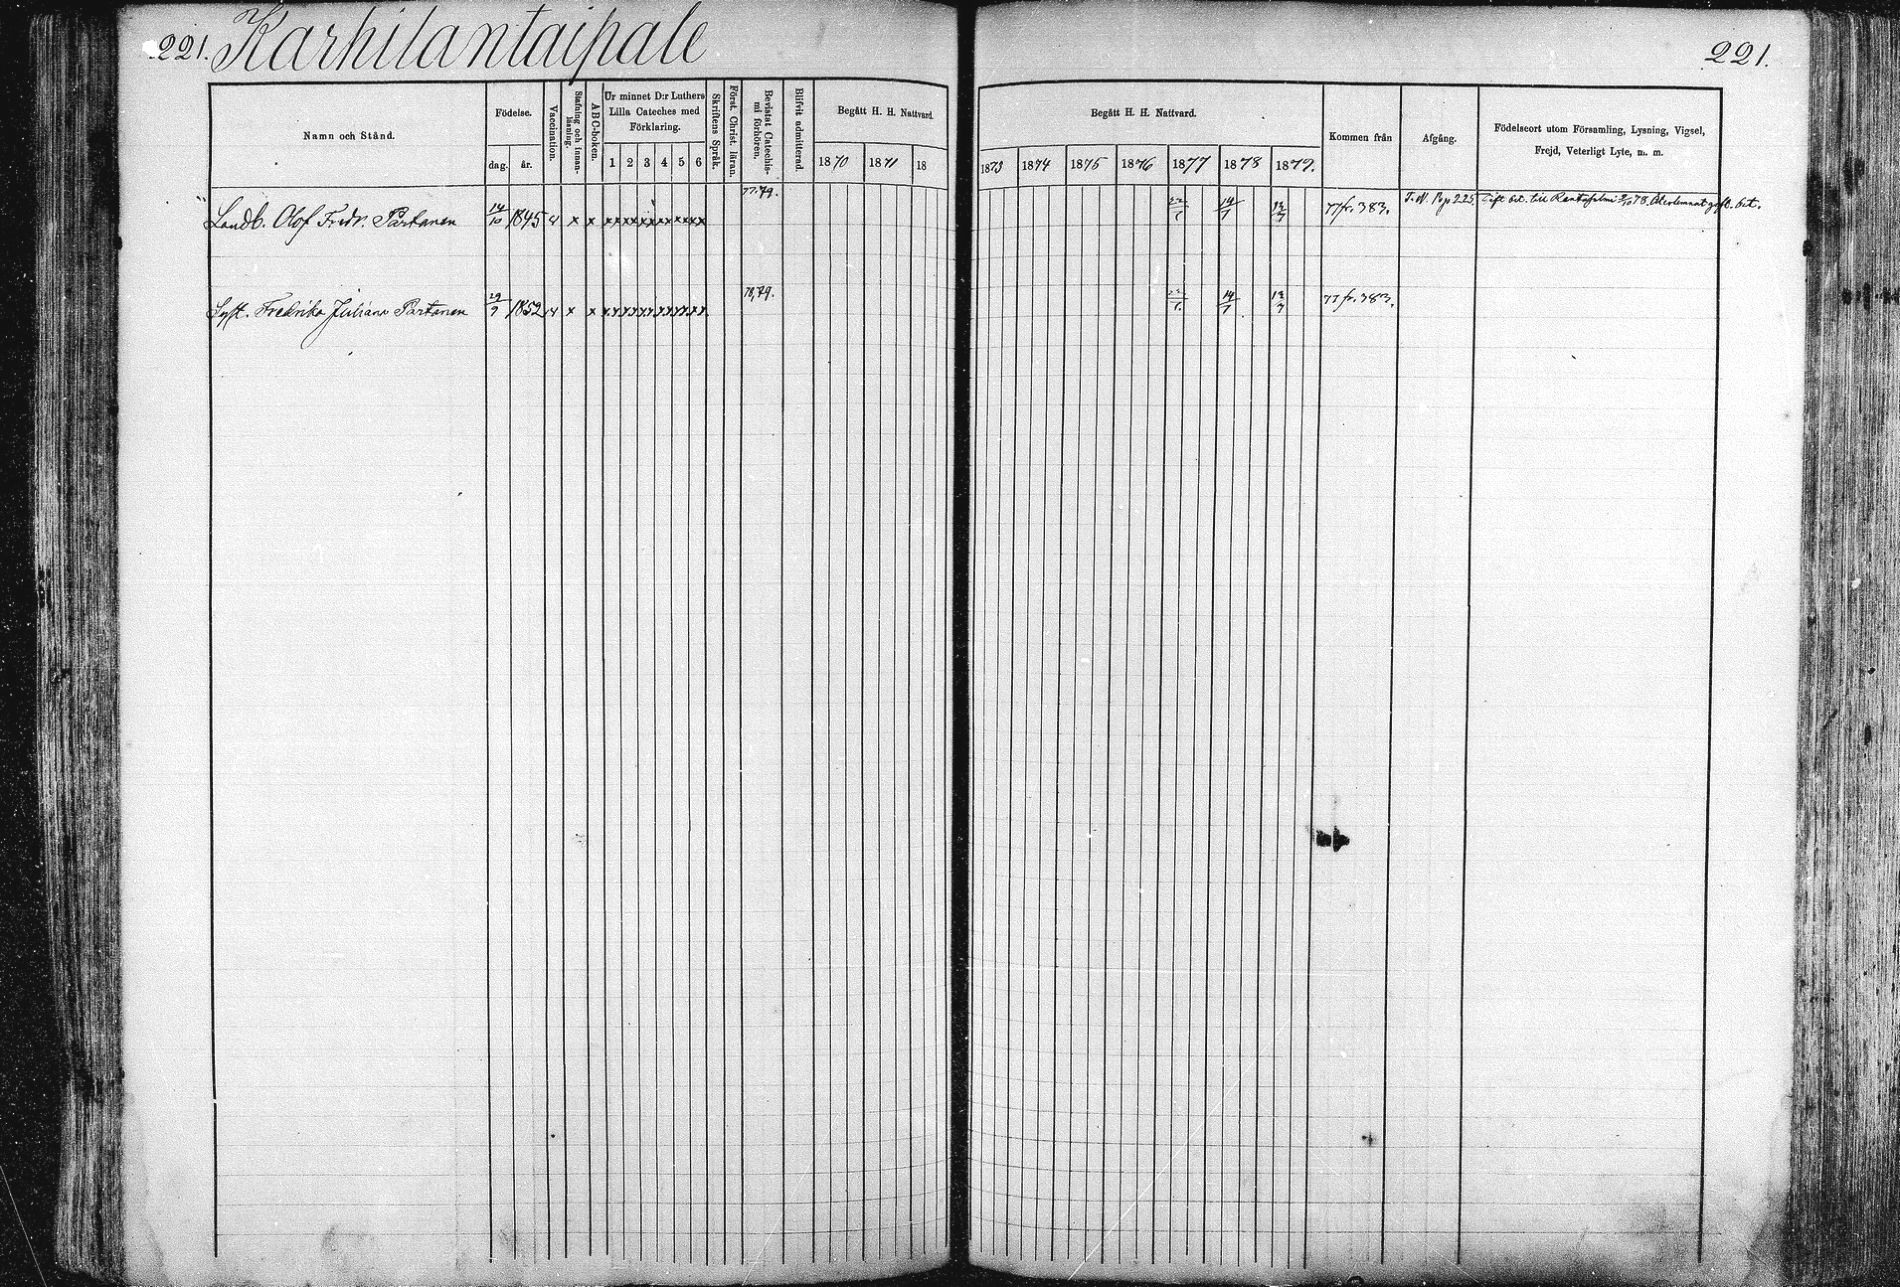 221. Karhilantaipale 221.
Namn och Stånd.
Födelse.
dag. år.
Vaccination.
Stafning och innanläsning.
ABC-boken.
Ur minnet D:r Luthers Lilla Cateches med Förklaring.
1 2 3 4 5 6
Skriftens Språk.
Först. Christ. läran.
Bevistat Catechismi förhören.
Blifvit admitterad.
Begått H. H. Nattvard.
1870 1871 18
Begått H. H. Nattvard.
1873 1874 1875 1876 1877 1878 1879.
Kommen från
Afgång.
Födelseort utom Församling, Lysning, Vigsel,
Frejd, Veterligt Lyte, m. m.
Landb. Olof Fredr. Partanen 14/10 1845 v x x xxxxxxxxxxxx 77.79. 14/7 77 fr. 383. Pag 225. bet. till 78
Syst. Fredrika Juliana Partanen 29/9 1852 v x x xxxxxxxxxxxx 78,79. 14/7 77 fr. 383.